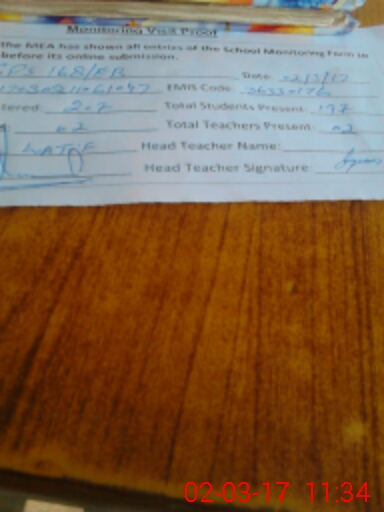 Monitoring Visit Proof
the MEA has shown all entries of the School Monitoring Form in
before its online submission.
GPS 168/EB Date: 02/3/17
EMIS Code:
tered: 207 Total Students Present: 197
02 Total Teachers Present: 02
LATIF Head Teacher Name:
Head Teacher Signature
02-03-17 11:34